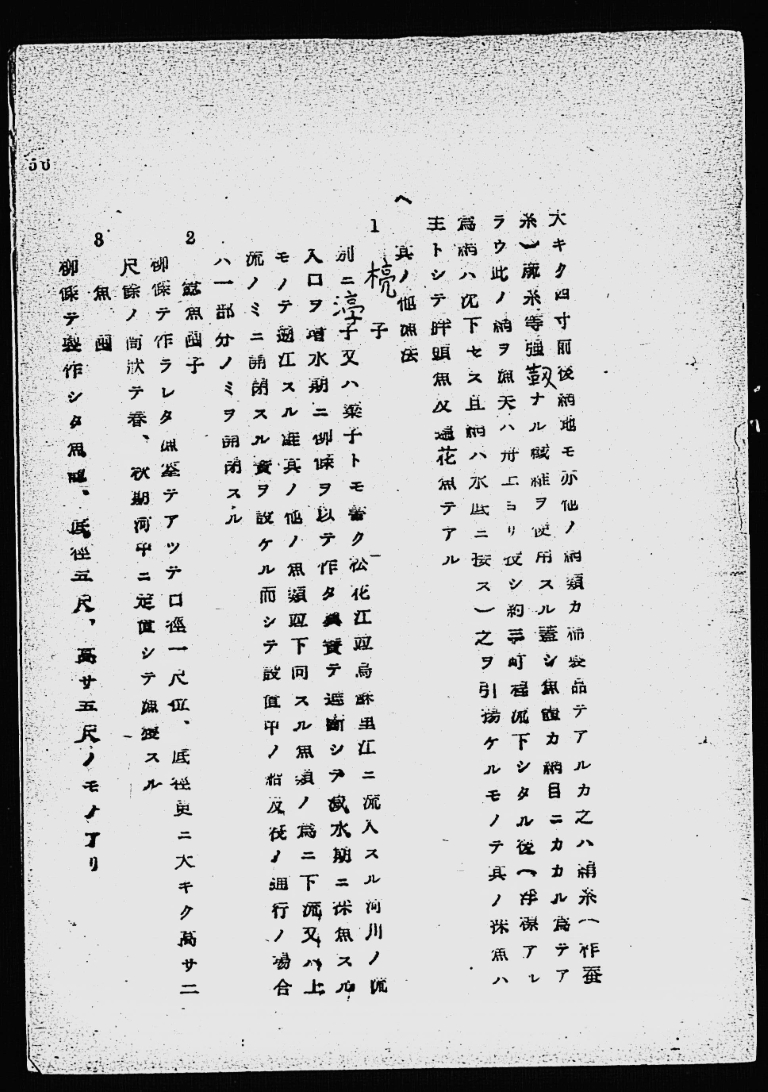 大キク四寸前後網地モ亦他ノ網類カ布袋品テアルカ之ハ絹糸(作蚕
糸)麻糸等強靱ナル繊維ヲ使用スル蓋シ魚體カ網目ニカカル為テア
ラウ此ノ網ヲ漁夫ハ舟上ヨリ投シ約三町程流下シタル後(浮標アル
為網ハ沈下セス且網ハ水底ニ接ス)之ヲ引揚ケルモノテ其ノ採魚ハ
主トシテ胖頭魚及遍花魚テアル
ヘ 其ノ他漁法
1 梁子
別ニ子又ハ梁子トモ書ク松花江及烏蘇里江ニ流入スル河川ノ流
入口ヲ増水期ニ柳條ヲ以テ作タ簀テ遮断シテ減水期ニ採魚スル
モノテ遡江スル鮭其ノ他ノ魚類及下向スル魚類ノ為ニ下流又ハ上
流ノミニ開閉スル簀ヲ設ケル而シテ設置中ノ船及筏ノ通行ノ場合
ハ一部分ノミヲ開閉スル
2 魚囤子
柳條テ作ラレタ漁テアツテ口徑一尺位、底徑更ニ大キク高サ二
尺餘ノ筒狀テ春、秋期河中ニ定置シテ漁獲スル
3 魚囤
柳條テ製作シタ魚、底徑五尺、高サ五尺ノモノアリ